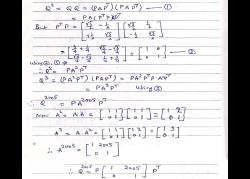 Q² = QQ = (PAPᵀ)(PAPᵀ) — ①
= PA(PᵀP)APᵀ
But PᵀP = [√3/2 -1/2; 1/2 √3/2] [√3/2 1/2; -1/2 √3/2]
= [3/4 + 1/4 √3/4 - √3/4; √3/4 - √3/4 1/4 + 3/4] = [1 0; 0 1]
Using ①, ② ⇒
∴ Q² = PA²Pᵀ
Q³ = (PA²Pᵀ)(PAPᵀ) = PA²PᵀP APᵀ
= PA³Pᵀ Using ②
∴ Q²⁰⁰⁵ = PA²⁰⁰⁵Pᵀ
Now A² = A·A = [1 1; 0 1] [1 1; 0 1] = [1 2; 0 1]
A³ = A·A² = [1 1; 0 1] [1 2; 0 1] = [1 3; 0 1]
∴ A²⁰⁰⁵ = [1 2005; 0 1]
∴ Q²⁰⁰⁵ = P [1 2005; 0 1] Pᵀ